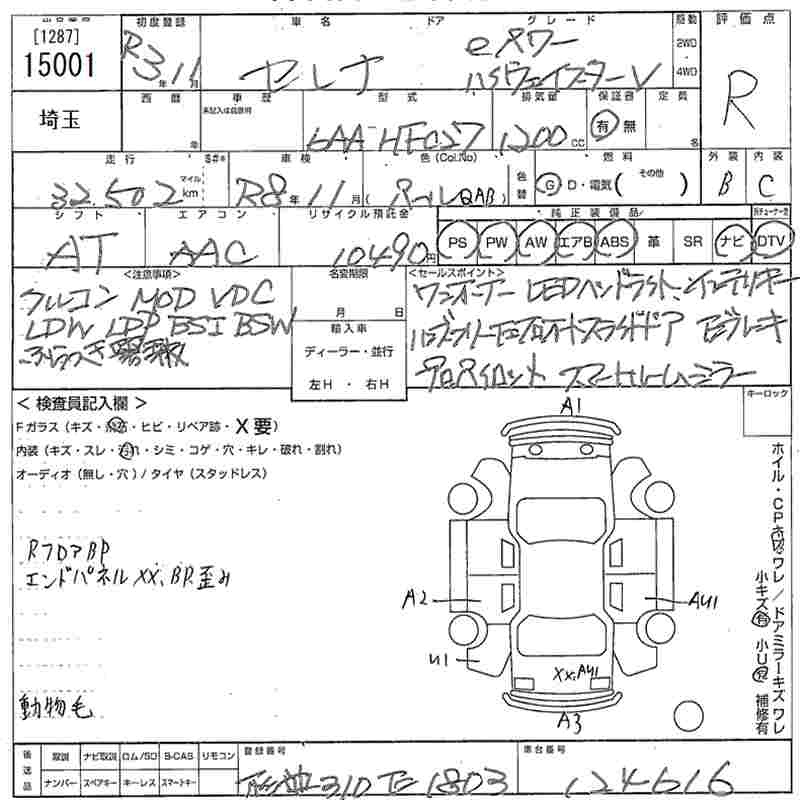 [1287]
15001
埼玉
初度登録
R3年11月
車名
セレナ
ドア
グレード
eパワー
ハイウェイスターV
駆動
2WD
4WD
評価点
R
西暦
年
車歴
未記入は自家用
型式
6AA-HFC27
排気量
1200cc
保証書
有 無
定員
名
走行
32,502
マイル
km
S#*
車検
R8年11月
色(Col.No)
パール(QAB)
色替
燃料
G・D・電気( その他 )
外装
B
内装
C
シフト
AT
エアコン
AAC
リサイクル預託金
10490円
純正装備品
PS PW AW エアB ABS 革 SR ナビ DTV
<注意事項>
フルコン MOD VDC
LDW LDP BSI BSW
名変期限
月 日
輸入車
ディーラー・並行
左H ・ 右H
<セールスポイント>
ワンオーナー LEDヘンドライト、インテリキー
プロパイロット スマートルームミラー
<検査員記入欄>
Fガラス(キズ・飛石・ヒビ・リペア跡・X要)
内装(キズ・スレ・汚れ・シミ・コゲ・穴・キレ・破れ・割れ)
オーディオ(無し・穴)/タイヤ(スタッドレス)
RフロアBP
エンドパネルXX、BP歪み
動物毛
キーロック
A1
A2
AU1
U1
XX,AU1
A3
ホイル・CPキズワレ/ドアミラーキズワレ
小キズ有 小U有 補修有
後送品
取説 ナビ取説 ロム/SD B-CAS リモコン
ナンバー スペアキー キーレス スマートキー
登録番号
310 1803
車台番号
124616